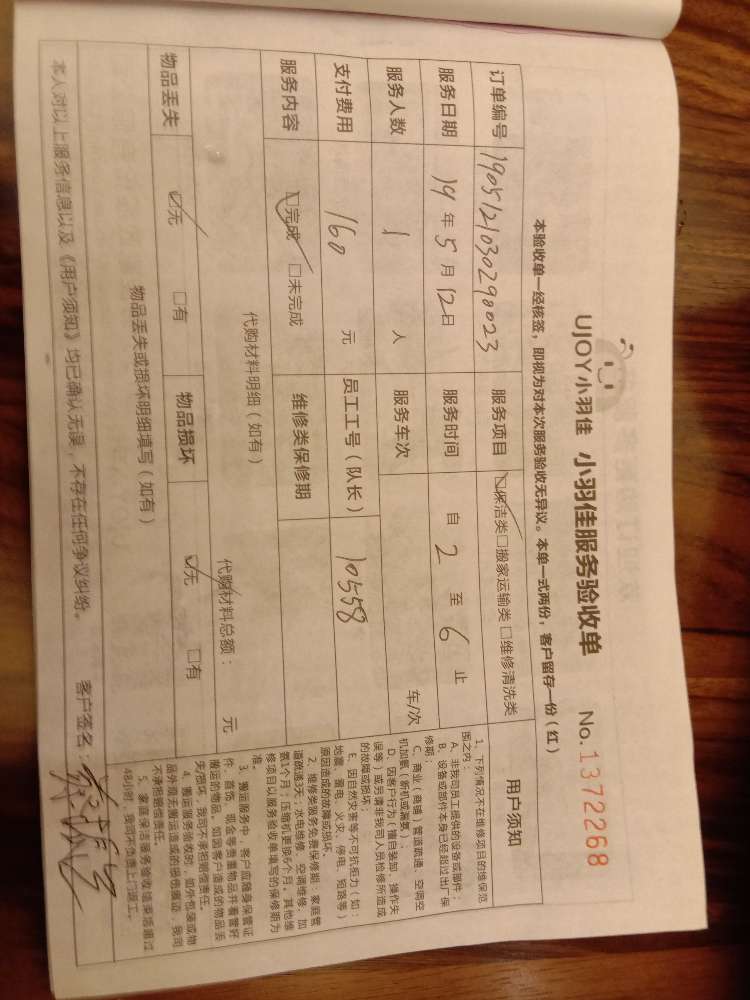 UJOY小羽佳 小羽佳服务验收单 No.1372268
本验收单一经核签，即视为对本次服务验收无异议。本单一式两份，客户留存一份（红）
订单编号 1905121030290023 服务项目 保洁类 搬家运输类 维修清洗类
服务日期 19年5月12日 服务时间 自 2 至 6 止
服务人数 1 人 服务车次 车/次
支付费用 160 元 员工工号（队长） 10558
服务内容 完成 未完成 维修类保修期
代购材料明细（如有） 代购材料总额： 元
物品丢失 无 有 物品损坏 无 有
物品丢失或损坏明细填写（如有）
本人对以上服务信息以及《用户须知》均已确认无误，不存在任何争议纠纷。 客户签名：
用户须知
1、下列情况不在维修项目的维保范
围之内：
A、非我司员工提供的设备或部件；
B、设备或部件本身已经超过出厂保
修期；
C、商业（商铺）管道疏通、空调空
机加氟（断机或漏氟）
D、因客户行为（擅自装卸、操作失
误等）或另请非我司人员检修所造成
的故障或损坏；
E、因自然灾害等不可抗拒力（如：
地震、雷电、火灾、停电、短路等）
原因造成的故障或损坏。
2、维修类服务免费保修期：家庭管
道疏通3天；水电维修、空调维修、加
氨1个月；压缩机更换6个月。其他维
修项目以服务验收单填写的保修期为
准。
3、搬运服务中，客户应随身保管证
件、首饰、现金等贵重物品并看管好
搬运的物品。如因客户造成的物品丢
失/损坏，我司不承担赔偿责任。
4、搬运服务验收时，如外包装或物
品外观无搬运造成的损伤痕迹，我司
不承担赔偿责任。
5、家庭保洁服务验收结束通过
48小时，我司不负责上门返工。